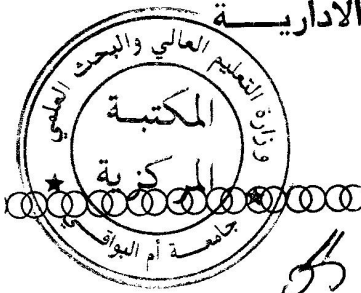 الاداريــــة
وزارة التعليم العالي والبحث العلمي
المكتبــة
المركزية
جامعــة أم البواقــي